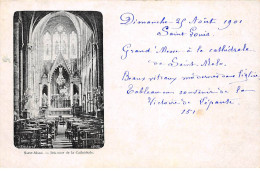 Dimanche 25 Août 1901
Saint Louis
Grand' Messe à la cathédrale
de Saint-Malo
Beaux vitraux
Tableau en souvenir de la
Victoire de Lépante
Saint-Malo. - Intérieur de la Cathédrale